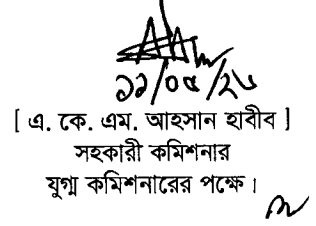 ১১/০৫/২৬
[ এ. কে. এম. আহসান হাবীব ]
সহকারী কমিশনার
যুগ্ম কমিশনারের পক্ষে।